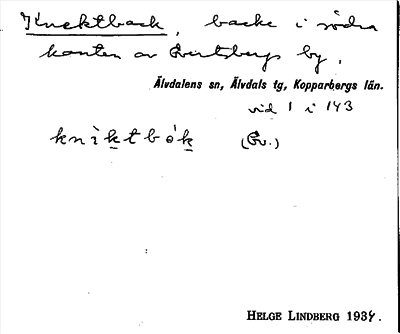 Knektback, backe i södra
kanten av Evertsbergs by.
Älvdalens sn, Älvdals tg, Kopparbergs län.
vid 1 i 143
knìktbók (Ev.)
HELGE LINDBERG 1934.